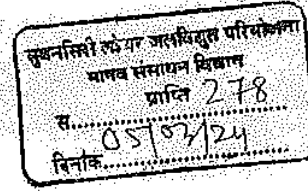 सुबनसिरी लोअर जलविद्युत परियोजना
मानव संसाधन विभाग
प्राप्ति 278
स.
दिनांक 05/03/24